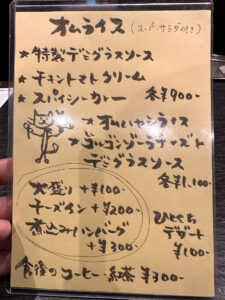 オムライス(スープ・サラダ付き)
★特製デミグラスソース
★チキントマトクリーム
★スパイシーカレー 各¥900-
★オムハヤシライス
★ゴルゴンゾーラチーズと
デミグラスソース
各¥1,100-
大盛り +¥100-
チーズイン +¥200-
煮込みハンバーグ
+¥300-
ひとくち
デザート
¥100-
食後のコーヒー・紅茶 ¥300-